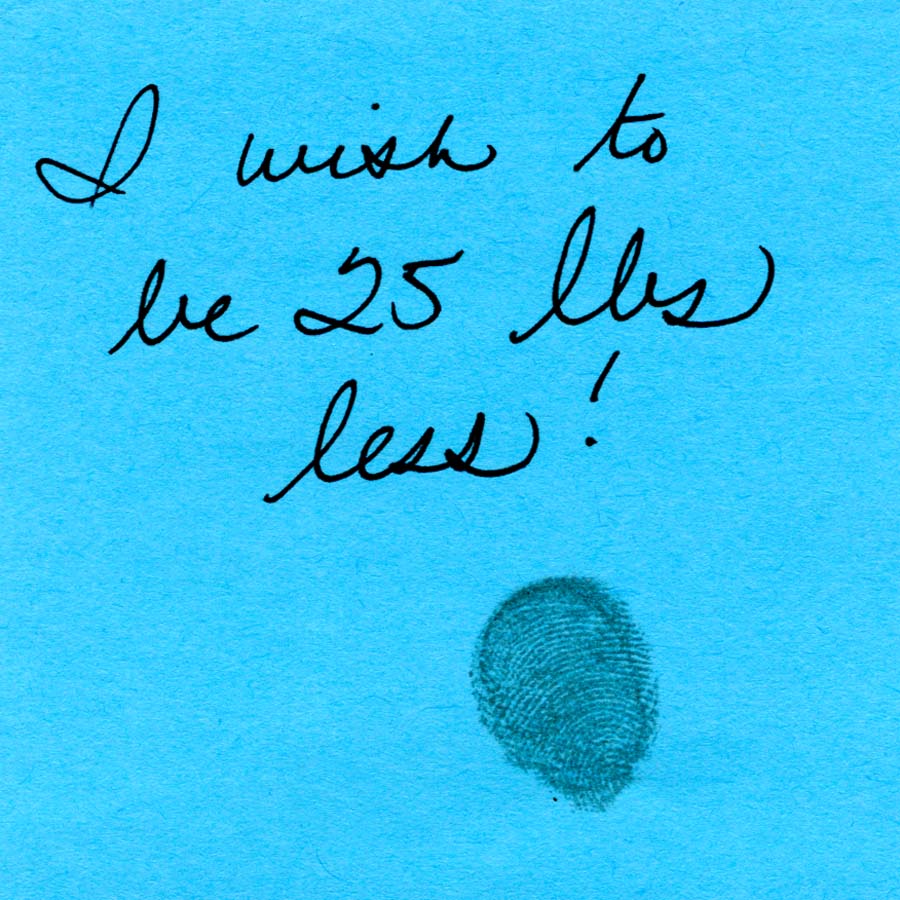 I wish to
be 25 lbs
less!